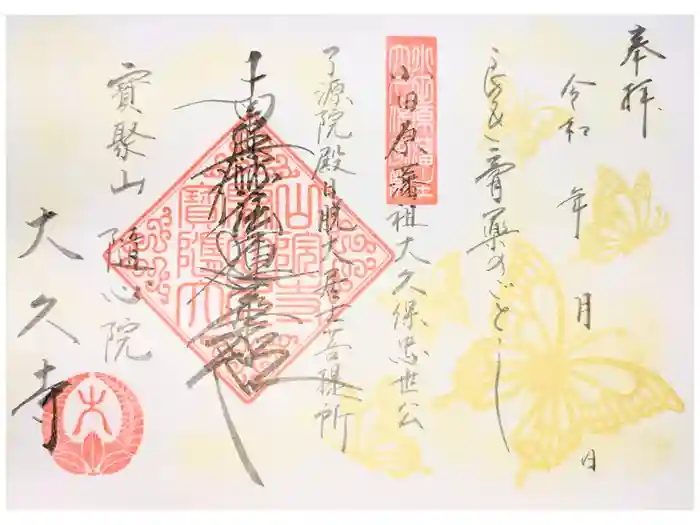 奉拝
令和 年 月 日
良き膏薬のごとし
小田原藩祖大久保忠世公
了源院殿日脱大居士菩提所
南無妙法蓮華経
寶聚山 隨心院
大久寺